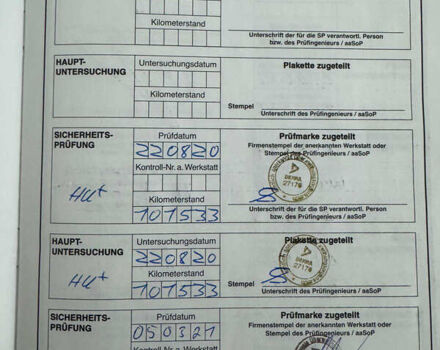 Kilometerstand
Unterschrift der für die SP verantwortl. Person
bzw. des Prüfingenieurs / aaSoP
HAUPT-
UNTERSUCHUNG
Untersuchungsdatum
Plakette zugeteilt
Kilometerstand
Stempel
Unterschrift des Prüfingenieurs / aaSoP
SICHERHEITS-
PRÜFUNG
Prüfdatum
Prüfmarke zugeteilt
220820
Firmenstempel der anerkannten Werkstatt oder
Stempel des Prüfingenieurs / aaSoP
Kontroll-Nr. a. Werkstatt
HU+
DEKRA
27176
Kilometerstand
101533
Unterschrift der für die SP verantwortl. Person
bzw. des Prüfingenieurs / aaSoP
HAUPT-
UNTERSUCHUNG
Untersuchungsdatum
Plakette zugeteilt
220820
HU+
DEKRA
27176
Kilometerstand
101533
Stempel
Unterschrift des Prüfingenieurs / aaSoP
SICHERHEITS-
PRÜFUNG
Prüfdatum
Prüfmarke zugeteilt
050321
Firmenstempel der anerkannten Werkstatt oder
Stempel des Prüfingenieurs / aaSoP
Kontroll-Nr. a. Werkstatt